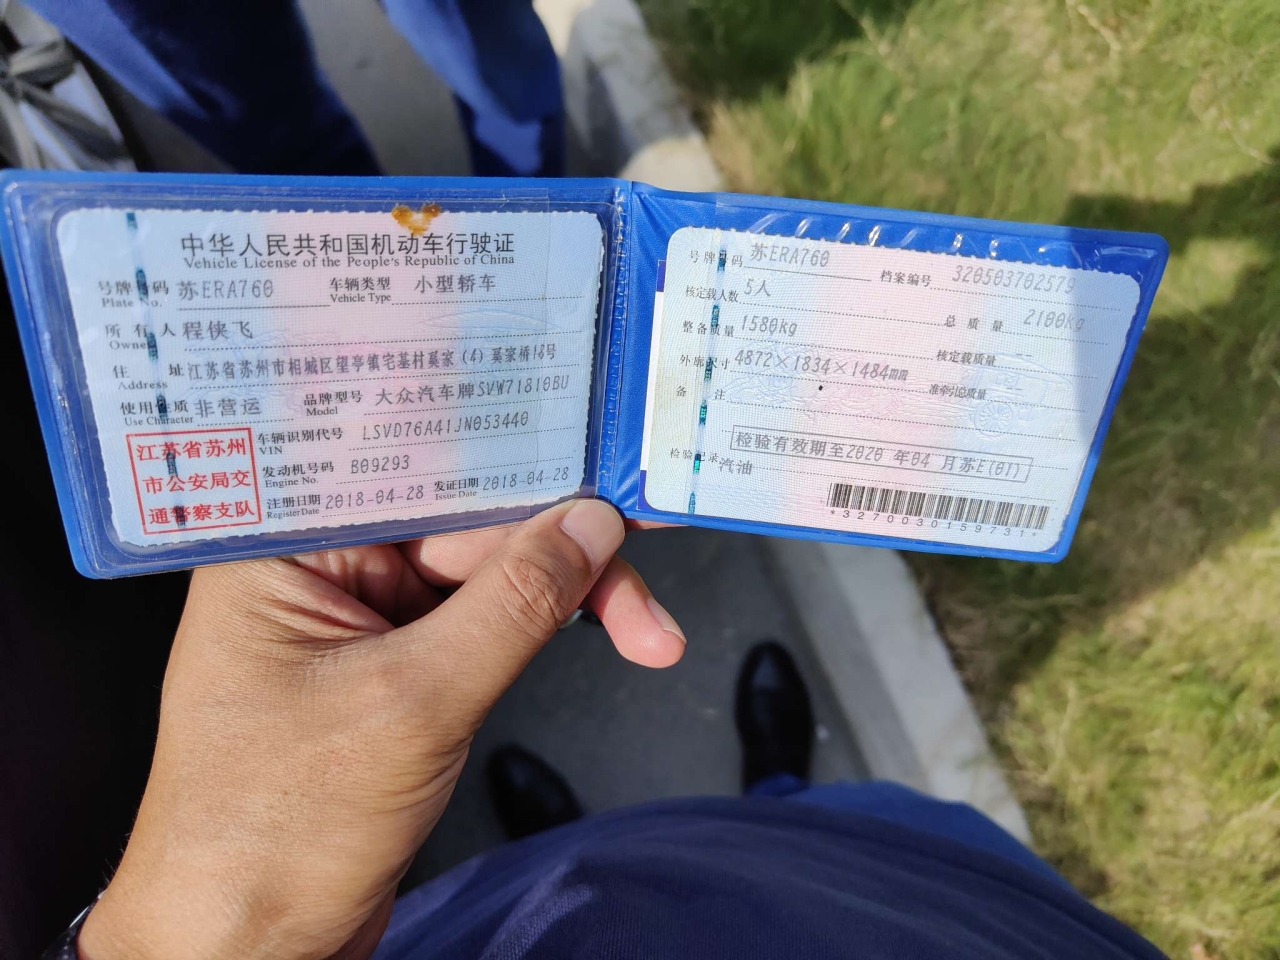 中华人民共和国机动车行驶证
Vehicle License of the People's Republic of China
号牌号码 苏ERA760 车辆类型 小型轿车
Plate No. Vehicle Type
所有人 程侠飞
Owner
住址 江苏省苏州市相城区望亭镇宅基村奚家(4)奚家桥18号
Address
使用性质 非营运 品牌型号 大众汽车牌SVW71810BU
Use Character Model
车辆识别代号 LSVD76A41JN053440
VIN
发动机号码 B09293
Engine No.
注册日期 2018-04-28 发证日期 2018-04-28
Register Date Issue Date
江苏省苏州
市公安局交
通警察支队
号牌号码 苏ERA760 档案编号 320503702579
核定载人数 5人 总质量 2100kg
整备质量 1580kg 核定载质量 --
外廓尺寸 4872×1834×1484mm 准牵引总质量 --
备注
检验有效期至2020年04月苏E(01)
检验记录 汽油
*3270030159731*